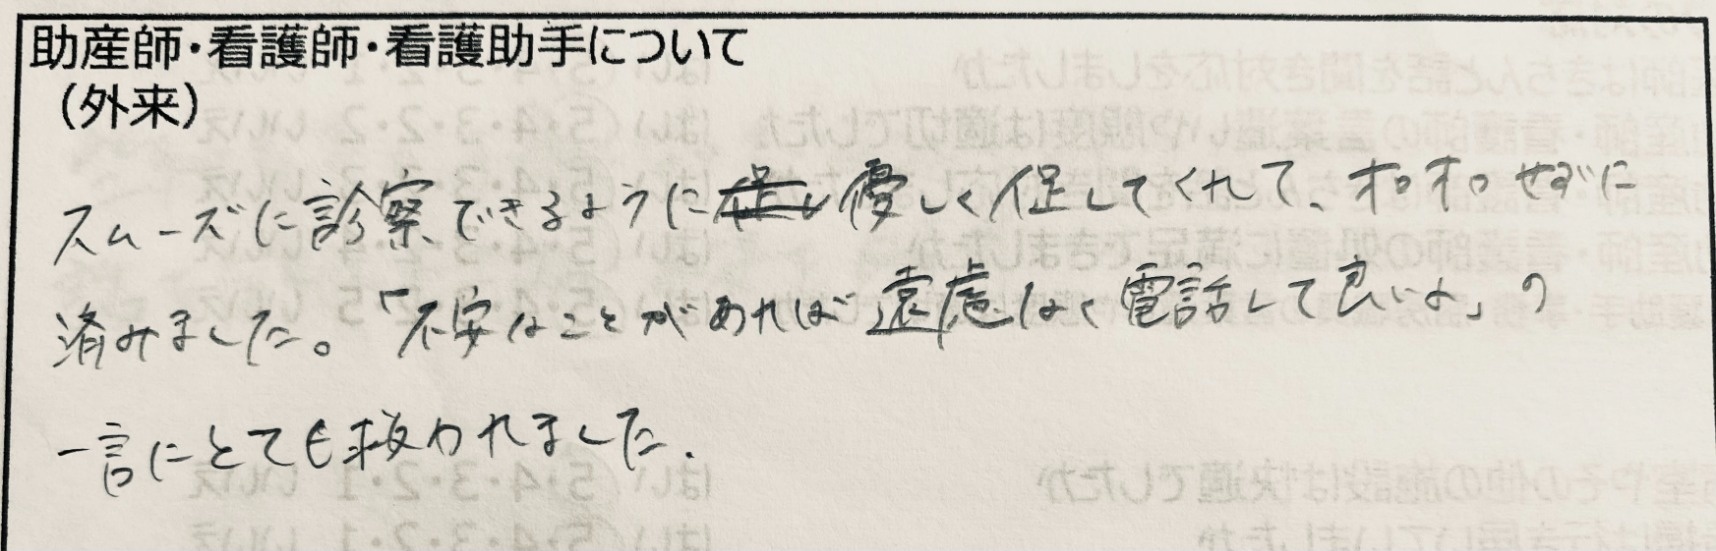 助産師・看護師・看護助手について
（外来）
スムーズに診察できるように優しく促してくれて、オロオロせずに
済みました。「不安なことがあれば遠慮なく電話して良いよ」の
一言にとても救われました.